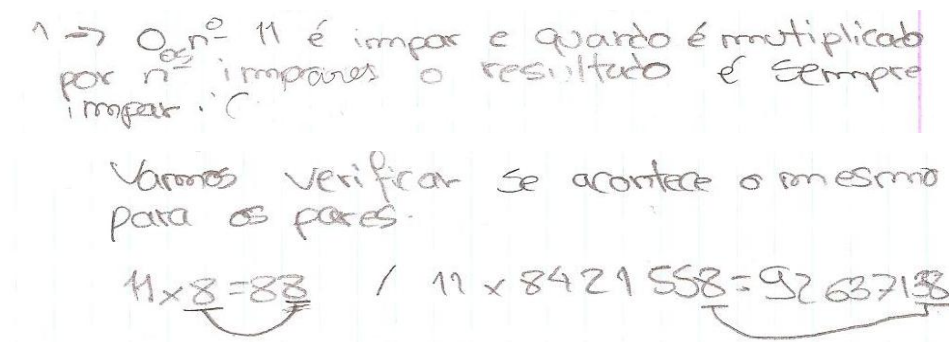 1 → O nº 11 é impar e quando é mutiplicado
por nºs impares o resultado é sempre
impar.
Vamos verificar se acontece o mesmo
para os pares.
11 x 8 = 88 / 11 x 8421 558 = 92 637138